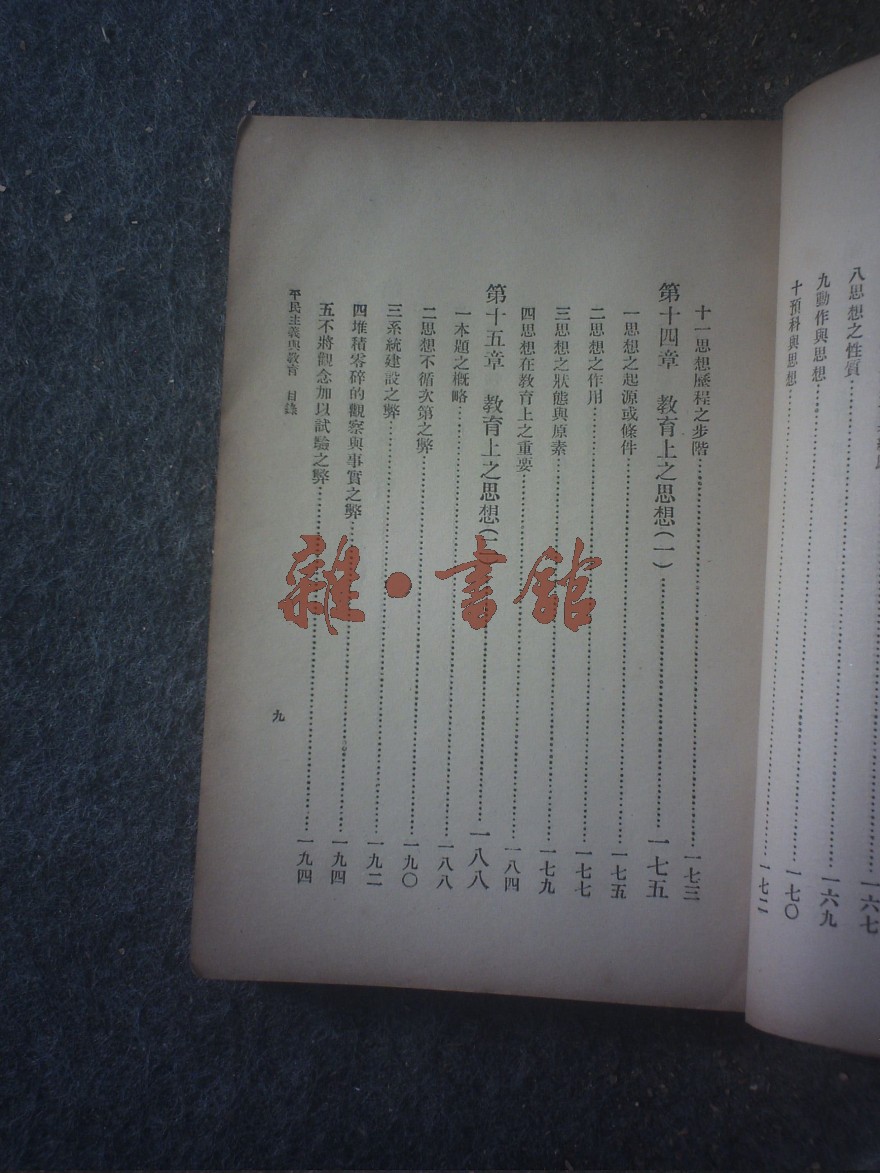 八思想之性質⋯⋯一六七
九動作與思想⋯⋯一六九
十預料與思想⋯⋯一七〇
一七二
十一思想歷程之步階⋯⋯一七三
第十四章 教育上之思想(一)⋯⋯一七五
一思想之起源或條件⋯⋯一七五
二思想之作用⋯⋯一七七
三思想之狀態與原素⋯⋯一七九
四思想在教育上之重要⋯⋯一八四
第十五章 教育上之思想(二)⋯⋯一八八
一本題之概略⋯⋯一八八
二思想不循次第之弊⋯⋯一九〇
三系統建設之弊⋯⋯一九二
四堆積零碎的觀察與事實之弊⋯⋯一九四
五不將觀念加以試驗之弊⋯⋯一九四
平民主義與教育 目錄
九
雜·書館